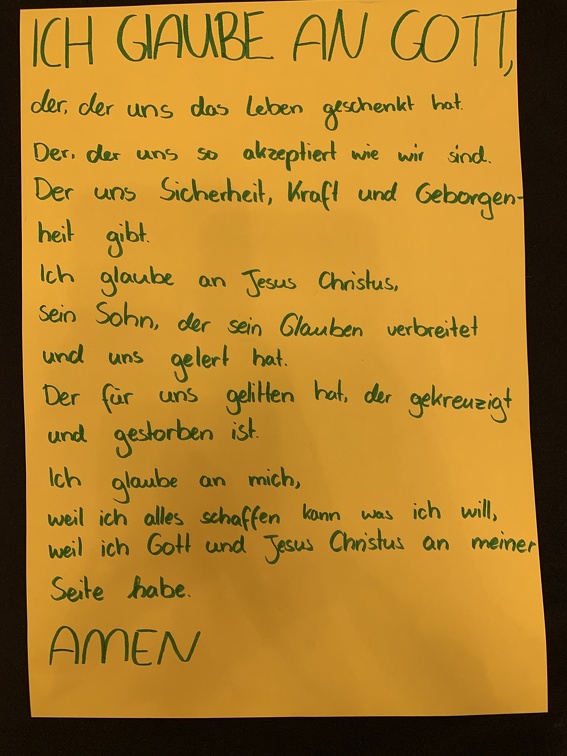 ICH GlAUBE AN GOTT,
der, der uns das Leben geschenkt hat.
Der, der uns so akzeptiert wie wir sind.
Der uns Sicherheit, Kraft und Geborgen-
heit gibt.
Ich glaube an Jesus Christus,
sein Sohn, der sein Glauben verbreitet
und uns gelert hat.
Der für uns gelitten hat, der gekreuzigt
und gestorben ist.
Ich glaube an mich,
weil ich alles schaffen kann was ich will,
weil ich Gott und Jesus Christus an meiner
Seite habe.
AMEN